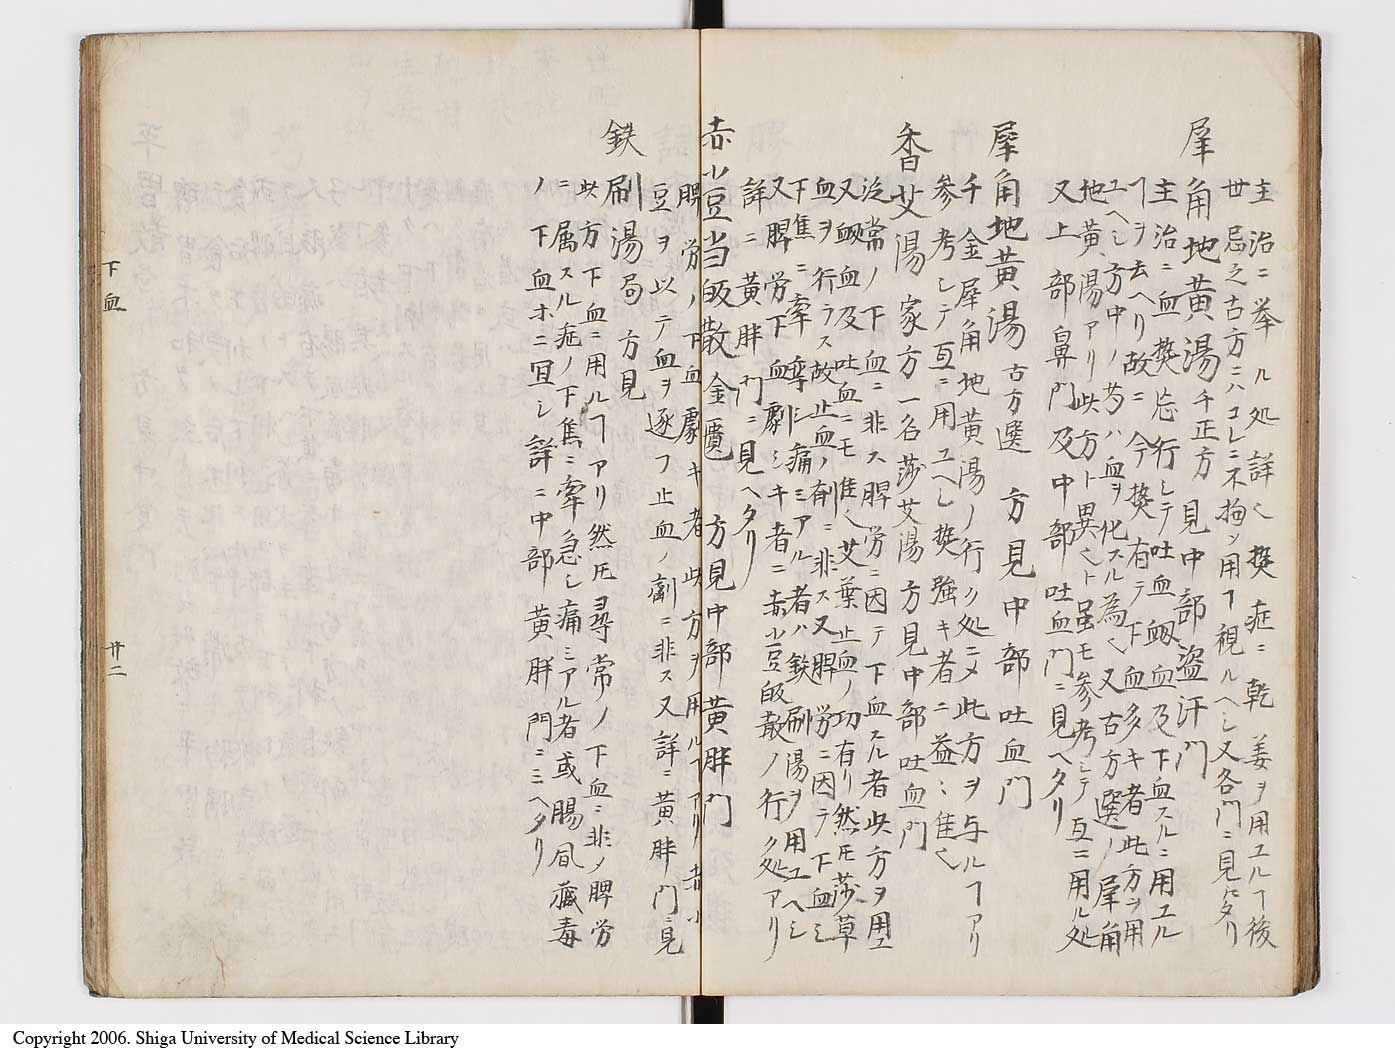 主治ニ挙ル処詳也擬症ニ乾姜ヲ用ユルヿ後
世忌之古方ニハコレニ不拘ソ用ヿ視ルヘシ又各門ニ見ヘタリ
犀角地黄湯 千正方 見中部盗汗門
主治ニ血擬忘行シテ吐血衂血及下血スルニ用ユル
ヿヲ去ヘリ故ニ今擬有テ下血多キ者此方ヲ用
ユヘシ方中ノ芍ハ血ヲ化スル為也又古方選ノ犀角
地黄湯アリ此方ト異也ト虽モ参考シテ互ニ用ル処
又上部鼻門及中部吐血門ニ見ヘタリ
犀角地黄湯 古方選 方見中部吐血門
千金犀角地黄湯ノ行ク処ニメ此方ヲ与ルヿアリ
参考シテ互ニ用ユヘシ擬強キ者ニ益〻佳也
香艾湯 家方一名莎艾湯 方見中部吐血門
泛常ノ下血ニ非ス脾労ニ因テ下血スル者此方ヲ用ユ
又衂血及吐血ニモ佳也艾葉止血ノ功有リ然𪜈莎草
血ヲ行ラス故止血ノ剤ニ非ス又脾労ニ因テ下血シ
下焦ニ牽導シ痛ミアル者ハ鉄刷湯ヲ用ユヘシ
又脾労下血劇シキ者ニ赤小豆皈散ノ行ク処アリ
詳ニ黄胖門ニ見ヘタリ
赤小豆当皈散 金匱 方見中部黄胖門
脾労ノ下血劇キ者此方ヲ用ルヿアリ赤小
豆ヲ以テ血ヲ逐フ止血ノ剤ニ非ス又詳ニ黄胖門ニ見
鉄刷湯 局 方見
此方下血ニ用ルヿアリ然𪜈尋常ノ下血ニ非ノ脾労
ニ属スル症ノ下焦ニ牽急シ痛ミアル者或腸風蔵毒
ノ下血ホニ冝シ詳ニ中部黄胖門ニミヘタリ
下血
廿二
Copyright 2006. Shiga University of Medical Science Library